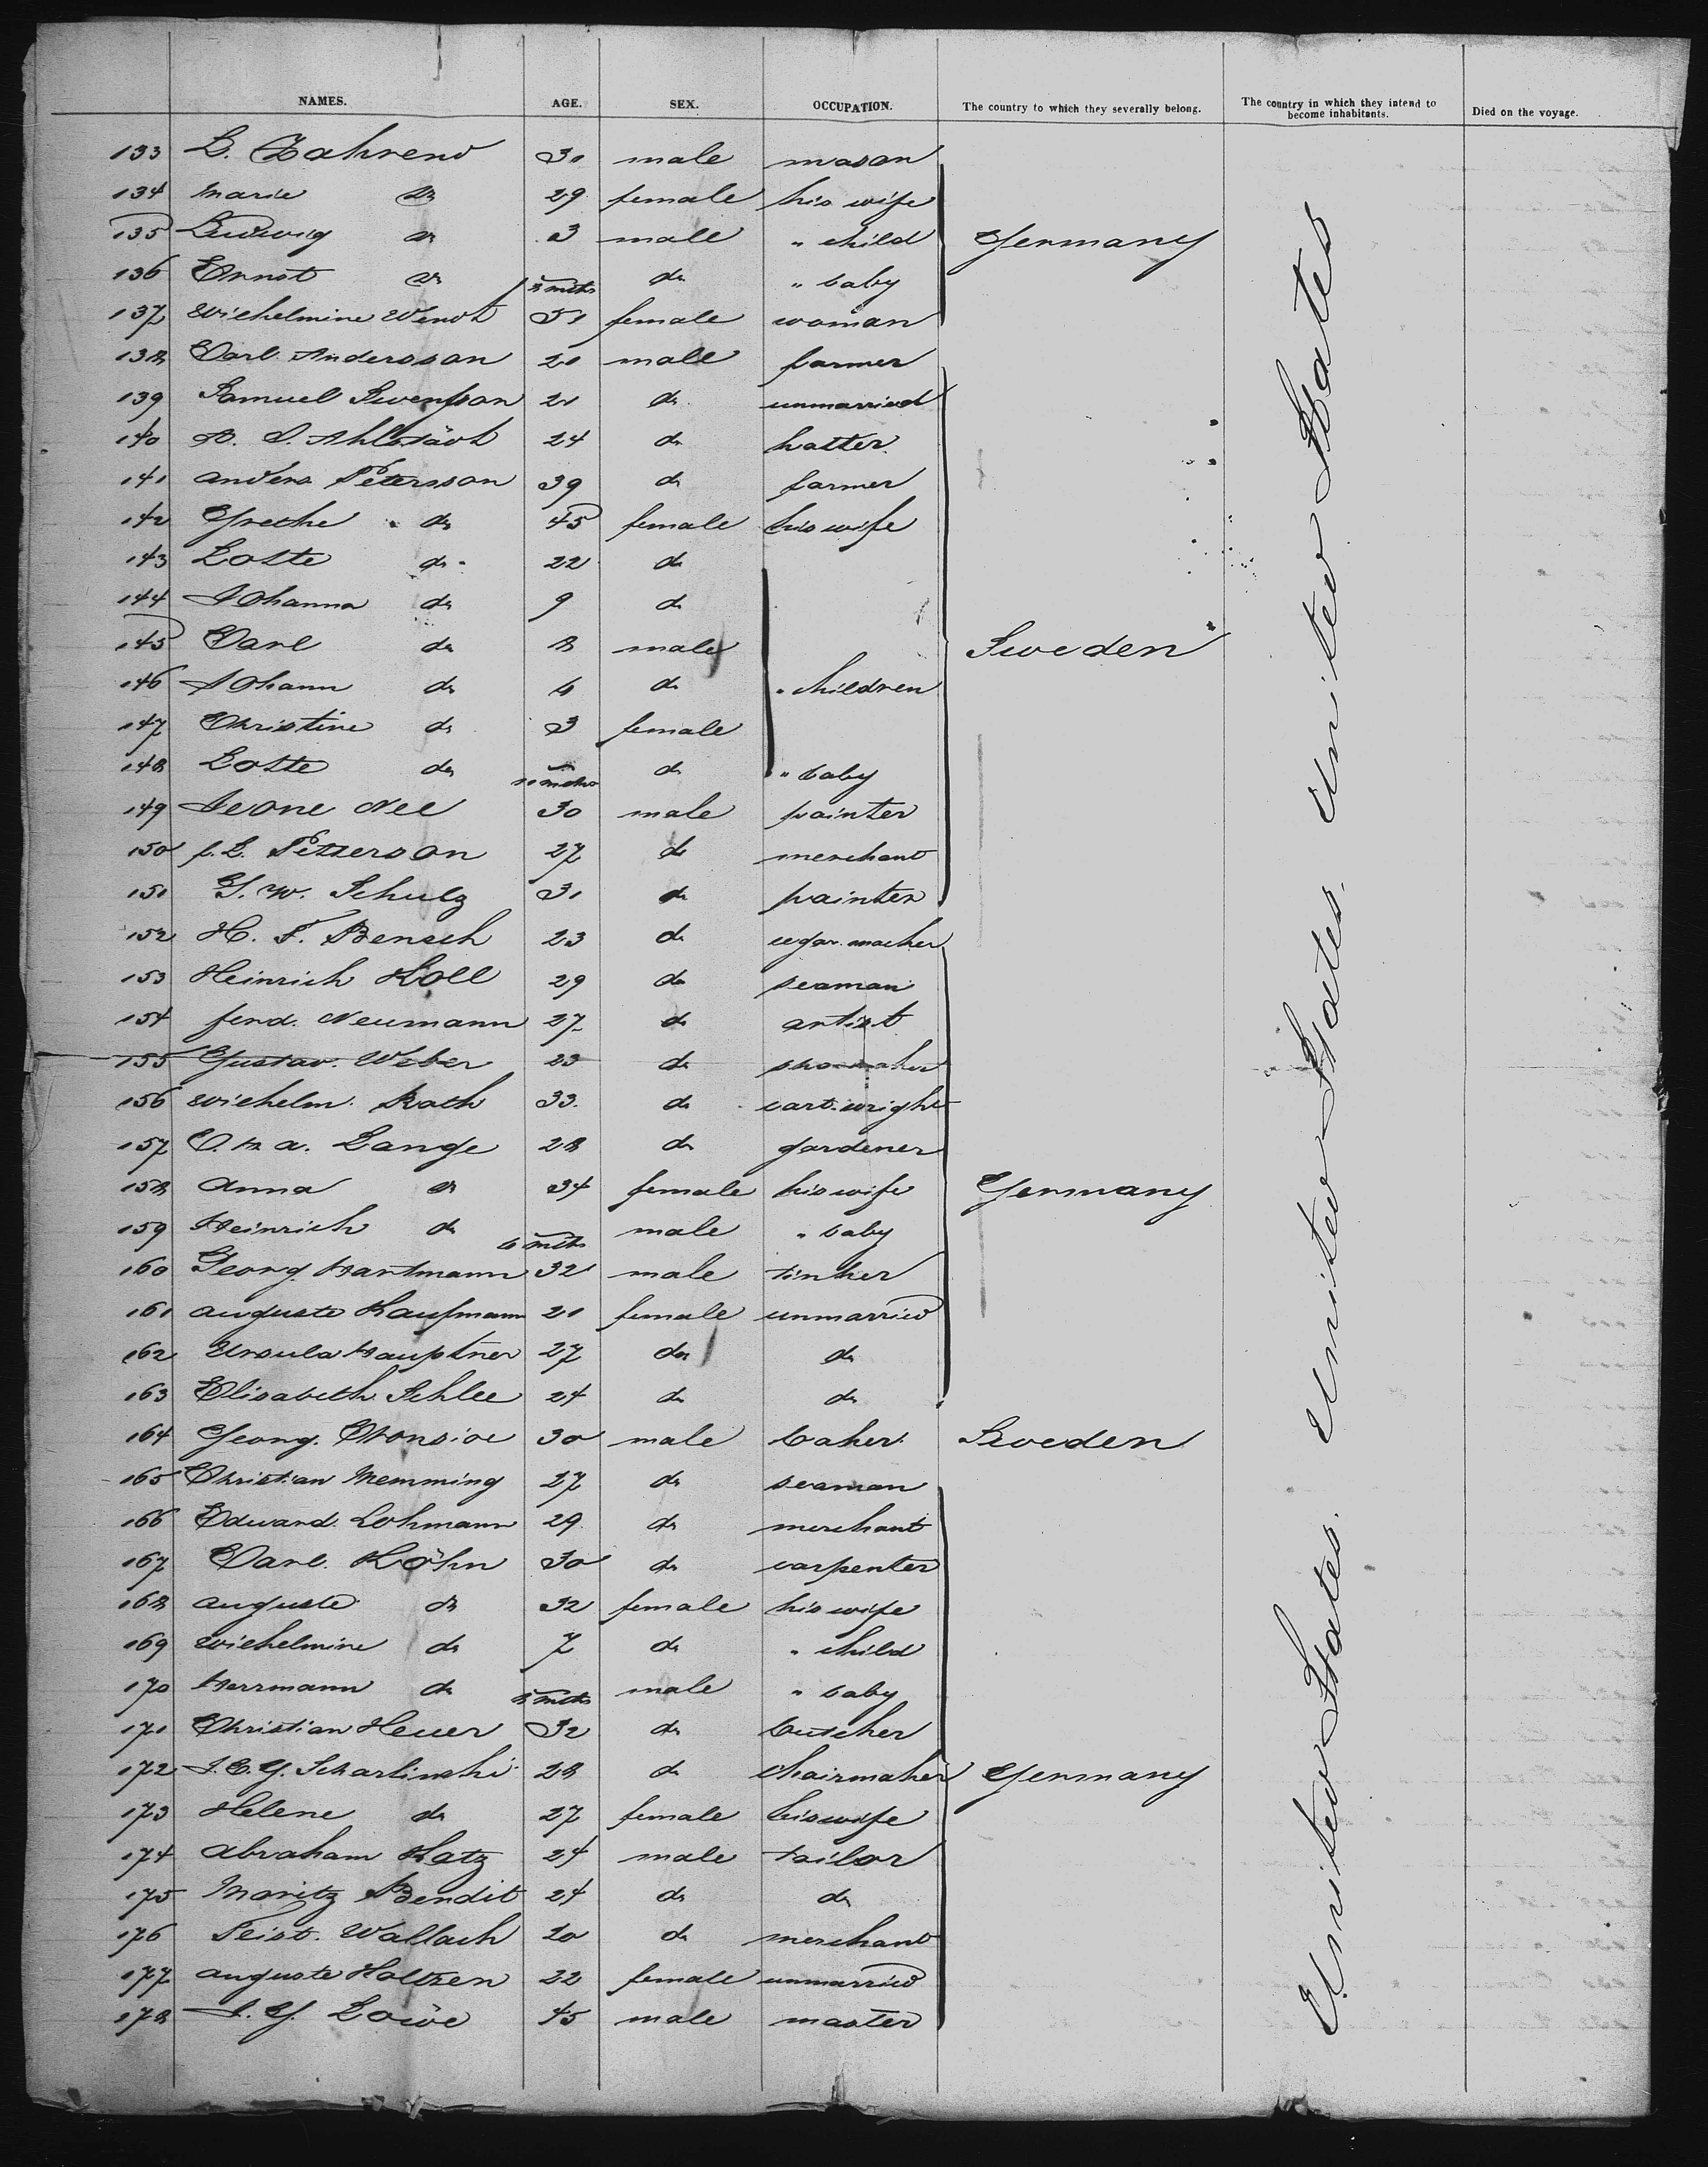 NAMES. AGE. SEX. OCCUPATION. The country to which they severally belong. The country in which they intend to become inhabitants. Died on the voyage.
133 L. Zahrend 31 male mason
134 Marie do 29 female his wife
135 Ludwig do 3 male " child Germany
136 Ernst do mths do " baby
137 Wilhelmine Wendt 51 female woman
138 Carl Andersson 21 male farmer
139 Samuel Swensson 21 do unmarried
140 A. S. Ahlstädt 24 do hatter
141 Anders Petersson 39 do farmer
142 Grethe do 45 female his wife
143 Lotte do 22 do
144 Johanna do 9 do
145 Carl do 8 male Sweden
146 Johann do 6 do " children
147 Christine do 3 female
148 Lotte do 10 mths do " baby
149 Nee 30 male painter
150 f. L. Petterson 27 do merchant
151 G. W. Schulz 31 do painter
152 H. F. Bensch 23 do cigar macher
153 Heinrich Koll 29 do seaman
154 ferd. Neumann 27 do artist
155 Gustav Weber 23 do shoemaker
156 Wilhelm Rath 33 do cartwright
157 C. H. A. Lange 28 do gardener
158 Anna do 34 female his wife Germany
159 Heinrich do 6 mths male " baby
160 Georg Hartmann 32 male tinker
161 Auguste Kaufmann 21 female unmarried
162 Ursula Hauptner 27 do do
163 Elisabeth Schlee 24 do do
164 Georg 30 male baker Sweden
165 Christian Memming 27 do seaman
166 Edward Lohmann 29 do merchant
167 Carl Köhn 30 do carpenter
168 Auguste do 32 female his wife
169 Wilhelmine do 7 do " child
170 Herrmann do 8 mths male " baby
171 Christian Heuer 32 do butcher
172 J. C. G. Scharlinski 28 do chairmaker Germany
173 Helene do 27 female his wife
174 Abraham Katz 24 male tailor
175 Moritz Bendit 24 do do
176 Feist. Wallach 20 do merchant
177 Auguste Holtzen 22 female unmarried
178 J. G. Loewe 45 male master
United States. United States. United States